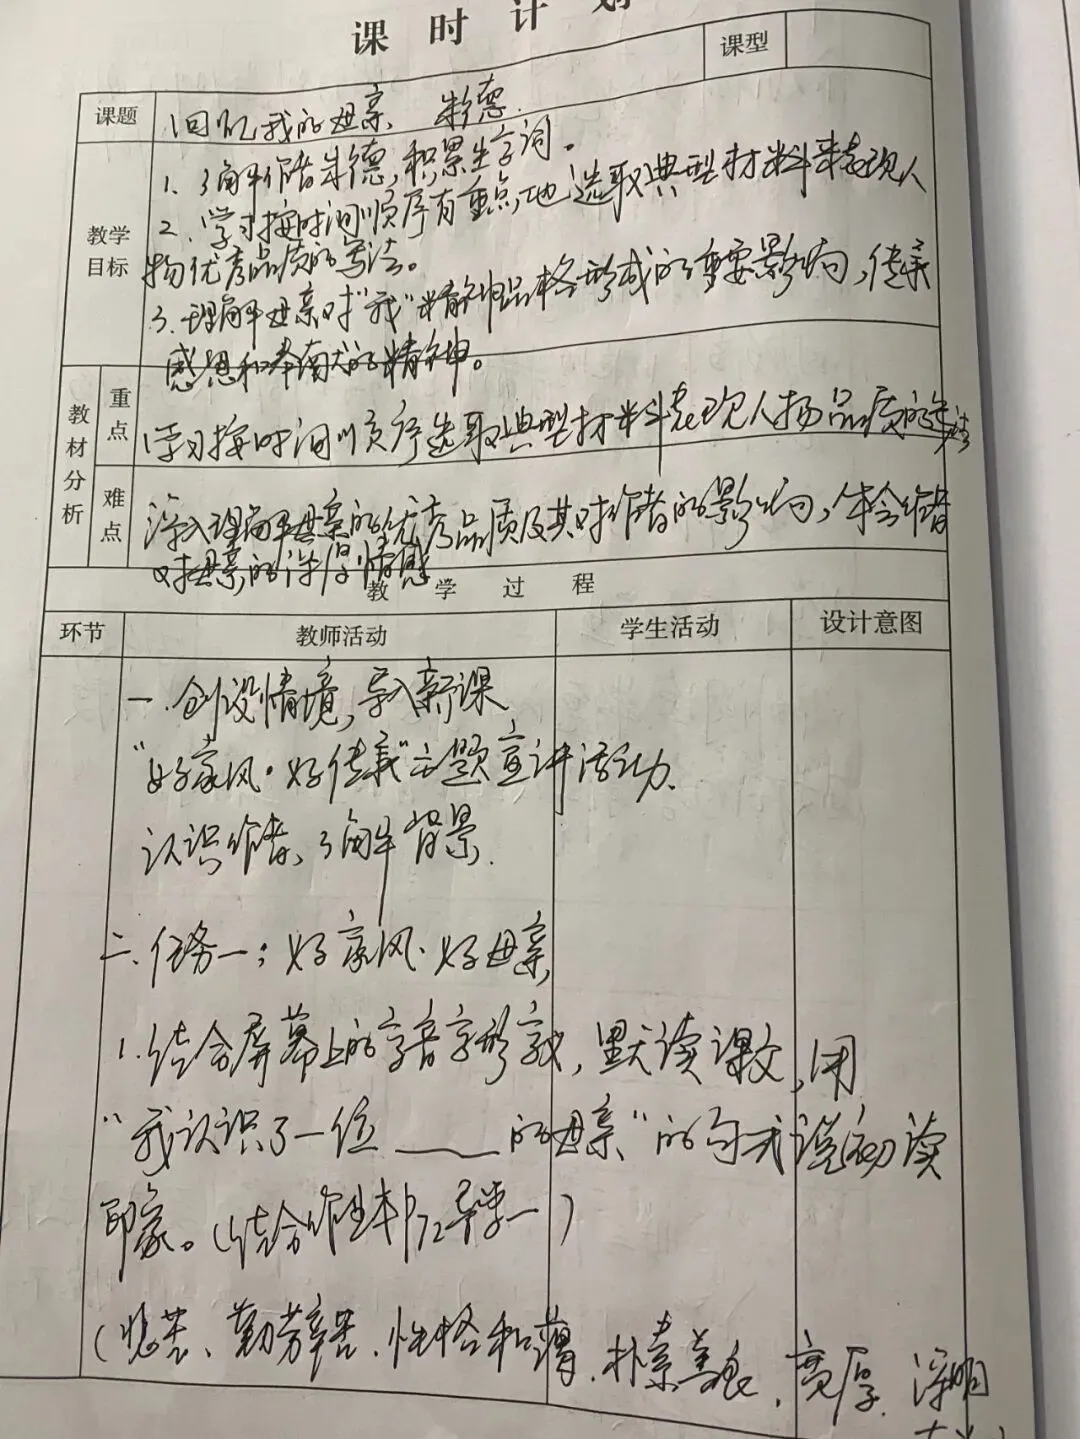 课时计划
课型
课题 《回忆我的母亲》 朱德
教学目标
1、了解作者朱德,积累生字词。
2、学习按时间顺序有重点地选取典型材料来表现人
物优秀品质的写法。
3、理解母亲对“我”精神品格形成的重要影响,传承
感恩和奉献的精神。
教材分析
重点 学习按时间顺序选取典型材料表现人物品质的写法
难点 深入理解母亲的优秀品质及其对作者的影响,体会作者
对母亲的深厚情感
教学过程
环节 教师活动 学生活动 设计意图
一.创设情境,导入新课
“好家风·好传承”主题宣讲活动.
认识作者,了解背景.
二.任务一:好家风·好母亲
1.结合屏幕上的字音字形字义,默读课文,用
“我认识了一位____的母亲”的句式说说初读
印象。(结合作业本P72导学一)
(悲苦、勤劳辛苦、性格和蔼、朴素善良、宽厚、深明